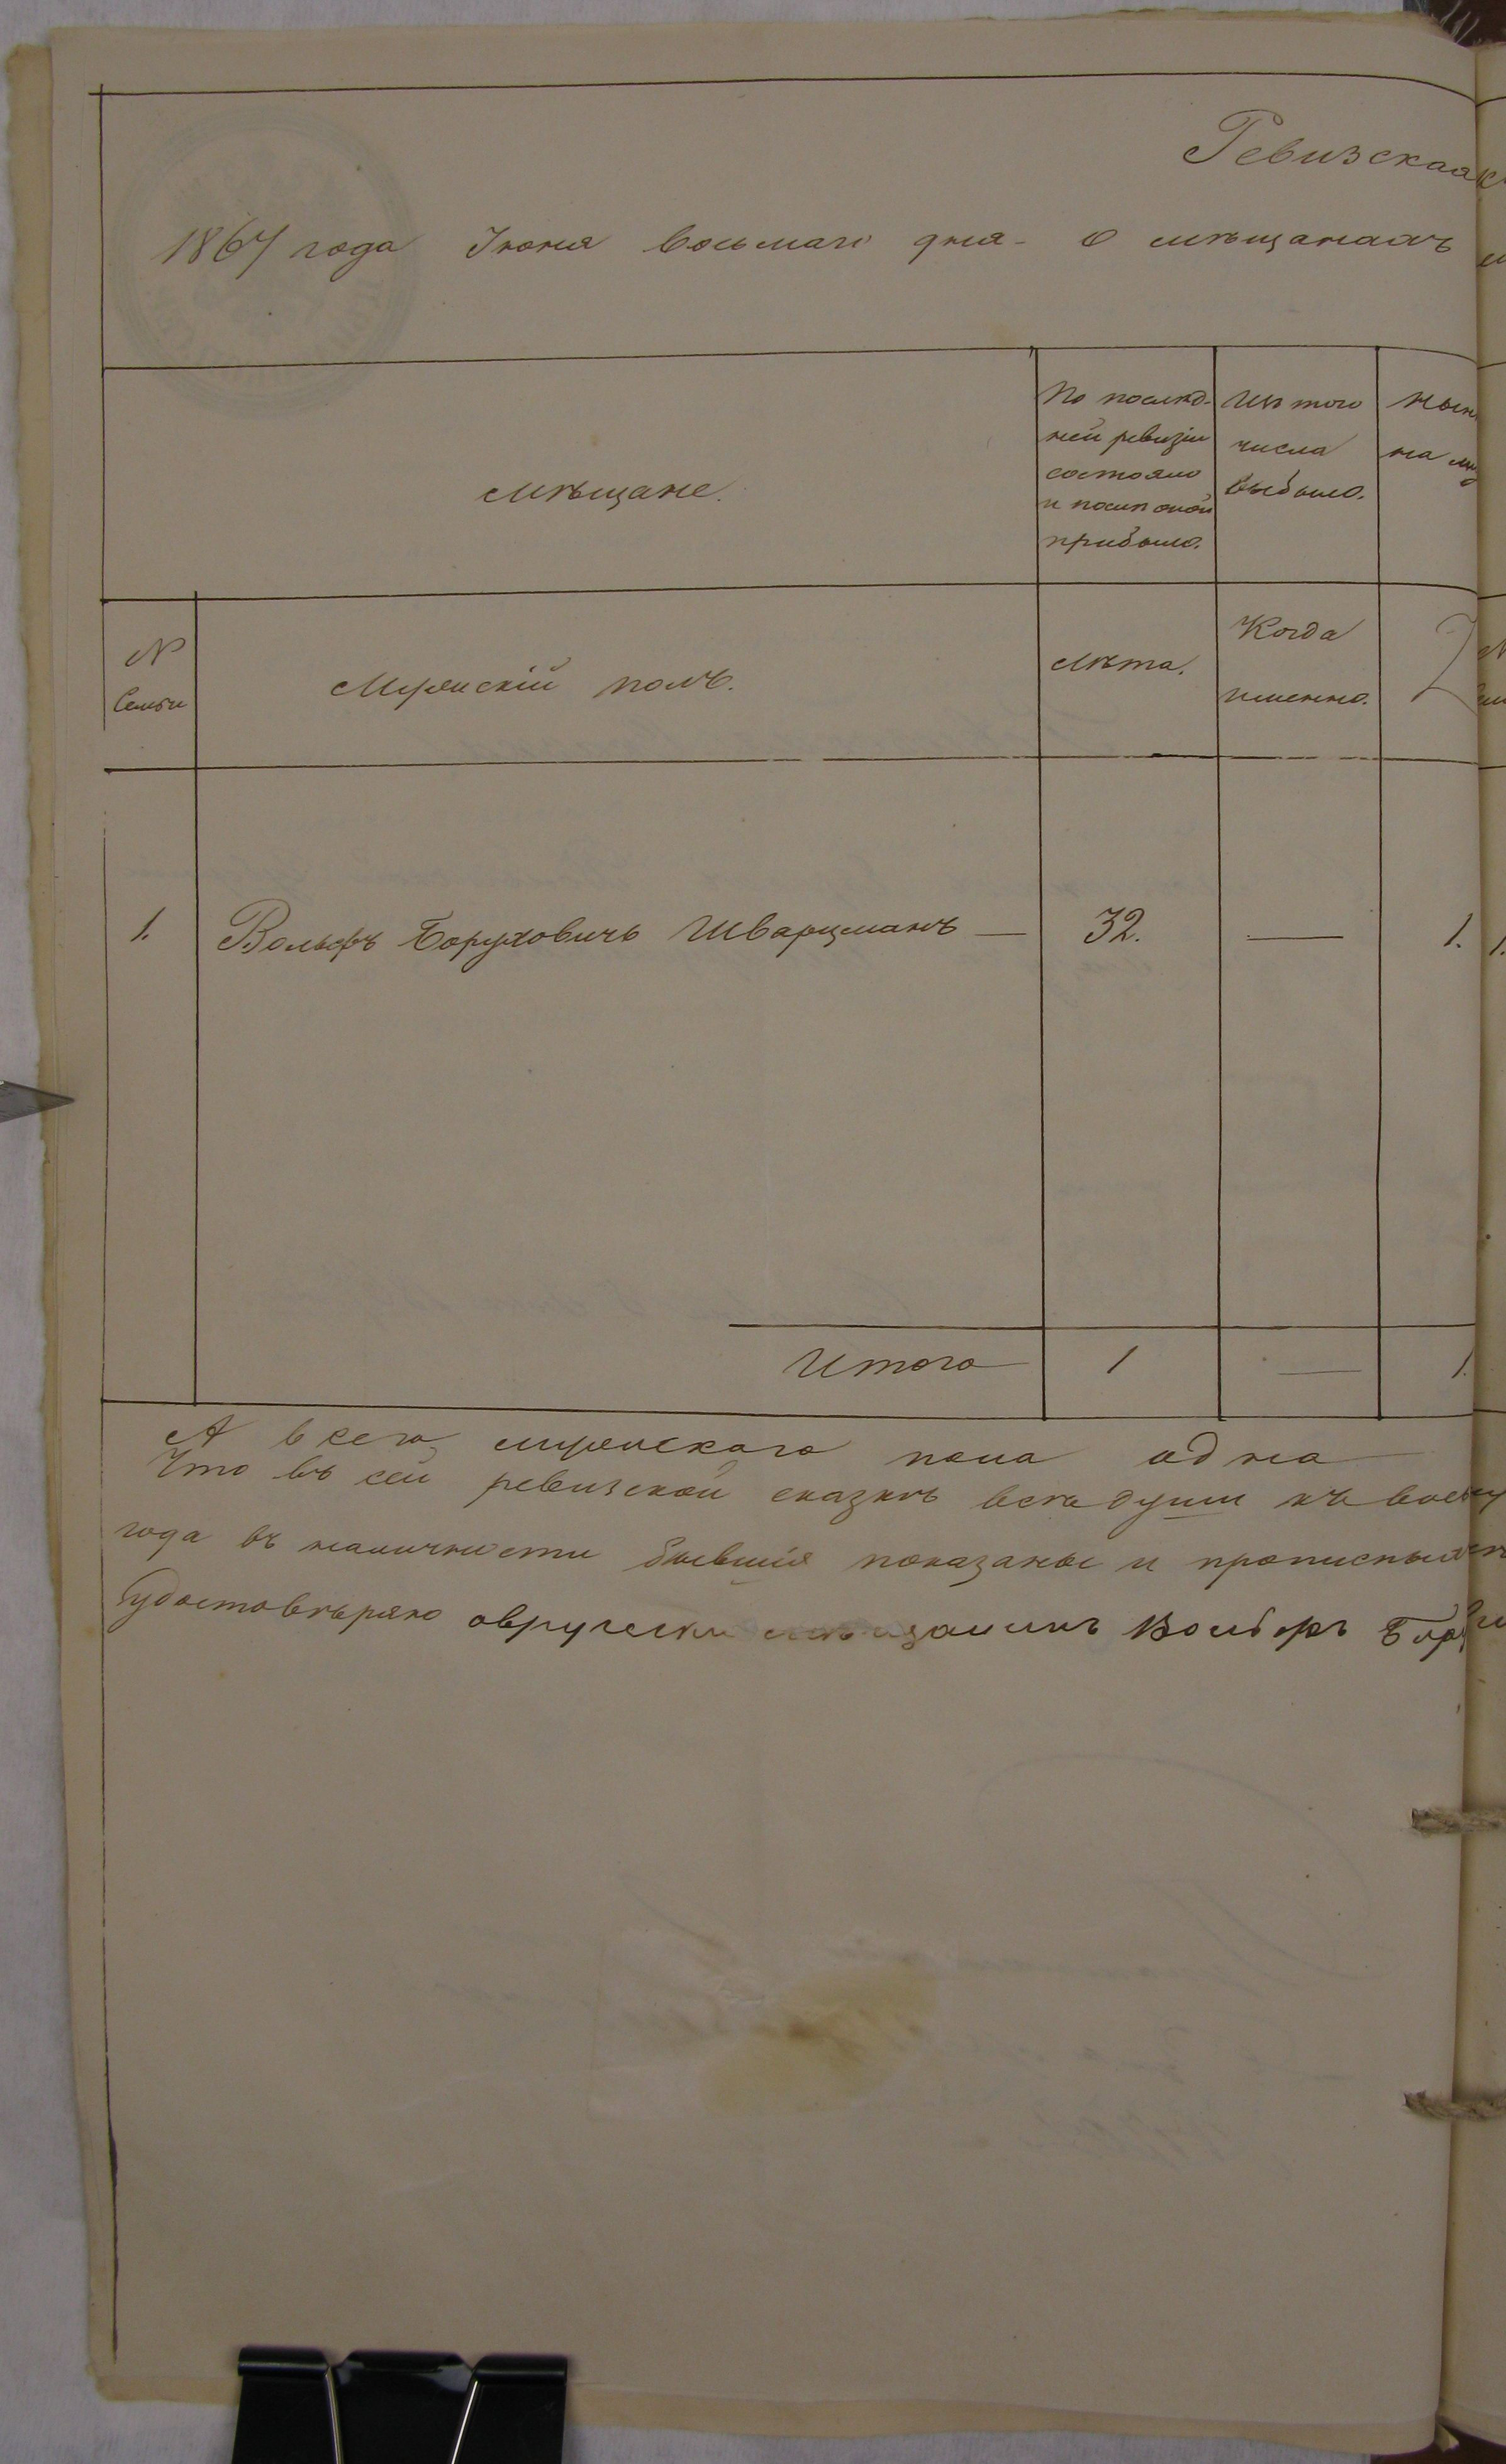 Ревизская
1867 года Іюня восьмаго дня - о мѣщанахъ
Мѣщане.
По послѣд-
ней ревизіи
состояло
и послѣ оной
прибыло.
Изъ того
числа
выбыло.
Нын
на ли
№
Семьи
Мужескій полъ.
Лѣта.
Когда
именно.
1. Вольфъ Боруховичъ Шварцманъ — 32. — 1.
Итого 1 — 1.
А всего мужескаго пола одна
Что въ сей ревизской сказкѣ всѣ души къ
года въ наличности бывшія показаны и прописныхъ
удостовѣряю овручски мѣщанинъ Вольфъ Бор